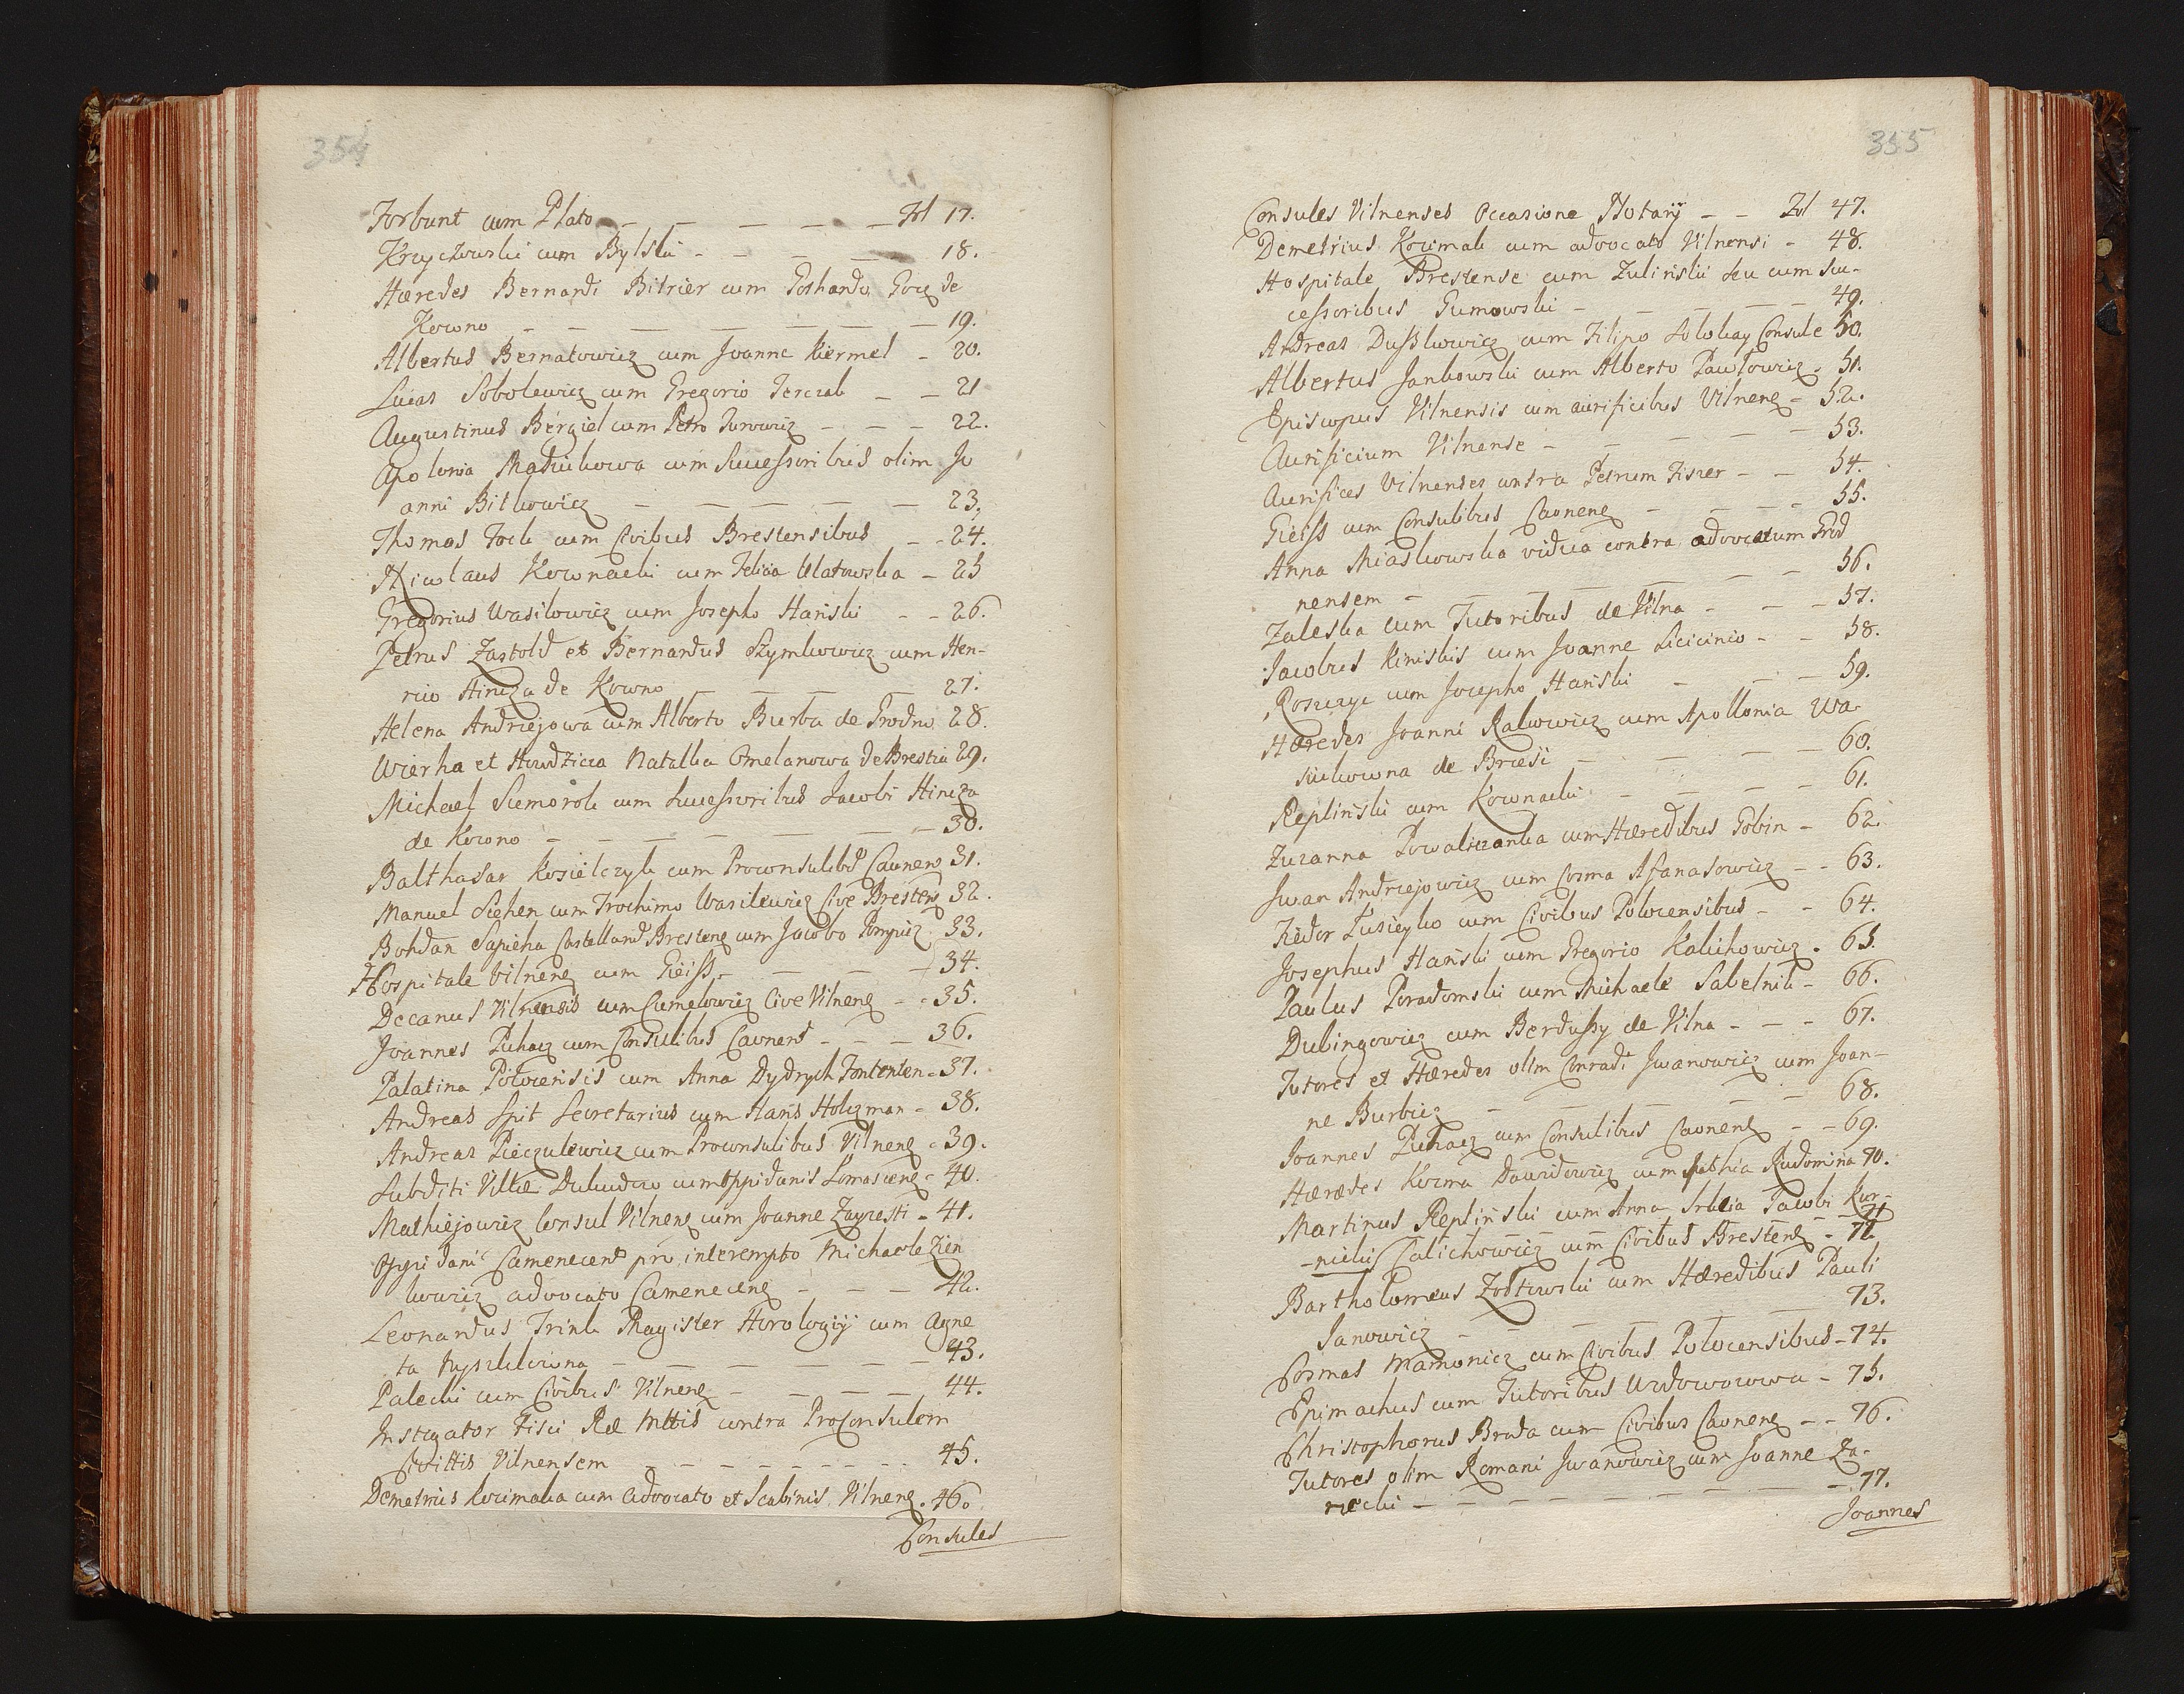 354
Torbunt cum Plato — — — — — Fol 17.
Krzyczowski cum Bylski — — — — 18.
Hæredes Bernardi Bitrier cum Goshardo Gorz de
Kowno — — — — — — — 19.
Albertus Bernatowicz cum Joanne Kiermel — 20.
Lucas Sobolewicz cum Gregorio Terczak — — 21
Augustinus Bergiel cum Petro Jurowicz — — — 22.
Apolonia cum Successoribus olim Jo
anni Bitkowicz — — — — — 23.
Thomas Fock cum Civibus Brestensibus — - 24.
Nicolaus Kownacki cum Felicia Ulatowska — 25
Gregorius Wasilowicz cum Josepho Hański — - 26.
Petrus Zastold et Bernardus Szymkowicz cum Hen-
rico Hincza de Kowno — — — — 27.
Helena Andrzejowa cum Alberto Burba de Grodno 28.
Wierha et Howdzicia Natalka Omelanowa de Brestia 29.
Michael Siemorok cum Successoribus Jacobi Hincza
de Kowno — — — — — — — 30.
Balthasar Kosielczyk cum Proconsulibus Caunens 31.
Manuel Siehen cum Trochimo Wasilewicz Cive Bresten 32.
Bohdan Sapieha Castelland Brestenz cum Jacobo Pompicz 33.
Hospitale Vilnenz cum Gieiss — — — — 34.
Decanus Vilnensis cum Cumelowicz Cive Vilnenz - - 35.
Joannes Puhacz cum Consulibus Caunens — — — 36.
Palatina Polocensis cum Anna Dydrych Fontenten - 37.
Andreas Spit Secretarius cum Hans Holczman - 38.
Andreas Pieczulewicz cum Proconsulibus Vilnenz - 39.
Subditi Villæ cum Oppidanis Lomascenz - 40.
Mathiejowicz Consul Vilnenz cum Joanne Zagresti - 41.
Oppidani Camenecens pro interempto Michaele Zien
kowicz advocato Camenecenz — — — 42.
Leonardus Trink Magister Horologÿ cum Agne
ta — — — — — — 43.
Palecki cum Civibus Vilnenz — — — — 44.
Instigator Fisci Ræ Mttis contra Proconsulem
Civittis Vilnensem — — — — — — — — 45.
Demetrius Kocimaka cum Advocato et Scabinis Vilnenz. 46.
Consules
355
Consules Vilnenses Occasione Notarÿ — — Fol 47.
Demetrius Kocimak cum advocato Vilnensi - 48.
Hospitale Brestense cum Zuliński seu cum suc-
cessoribus Gumowski — — — — — 49.
Andreas Dusskowicz cum Filipo Solohay Consule 50.
Albertus Jankowski cum Alberto Pawłowicz. 51.
Episcopus Vilnensis cum aurificibus Vilnenz - 52.
Aurificium Vilnense — — — — — 53.
Aurifices Vilnenses contra Petrum Fiszer — — 54.
Gieiss cum Consulibus Caunenz — — — — 55.
Anna Miaskowska vidua contra advocatum Grod
nensem — — — — — — 56.
Zaleska cum Tutoribus de Vilna — — — 57.
Jacobus Kiniskis cum Joanne Sicicinio — — 58.
cum Josepho Hański — — — 59.
Hæredes Joanni Rakowicz cum Apollonia Wa-
siukowna de Briesi — — — — 60.
Replinski cum Kownacki — — — — 61.
Zuzanna Powaliszanka cum Hæredibus Gobin - 62.
Jwan Andrzejowicz cum Cosma Afanasowicz — - 63.
Fiedor cum Civibus Polocensibus — - 64.
Josephus Hański cum Gregorio Kalichowicz - 65.
Paulus Poradomski cum Michaele Sabelnik - 66.
Dubingowicz cum Berdussy de Vilna - — - 67.
Tutores et Hæredes olim Conradi Jwanowicz cum Joan-
ne Burbicz — — — — — — 68.
Joannes Puhacz cum Consulibus Caunenz — - 69.
Hæredes Kozma Dawidowicz cum Rudomina 70.
Martinus Replinski cum Anna Jacobi Kur-
-nicki 71
Calichowicz cum Civibus Brestenz - 72.
Bartholomeus Zołtowski cum Hæredibus Pauli
Janowicz — — — — — — 73.
Cosmas Mamonicz cum Civibus Polocensibus - 74.
Epimachus cum Tutoribus - 75.
Christophorus Broda cum Civibus Caunenz — - 76.
Tutores olim Romani Jwanowicz cum Joanne Za-
rzecki — — — — — — — — 77.
Joannes